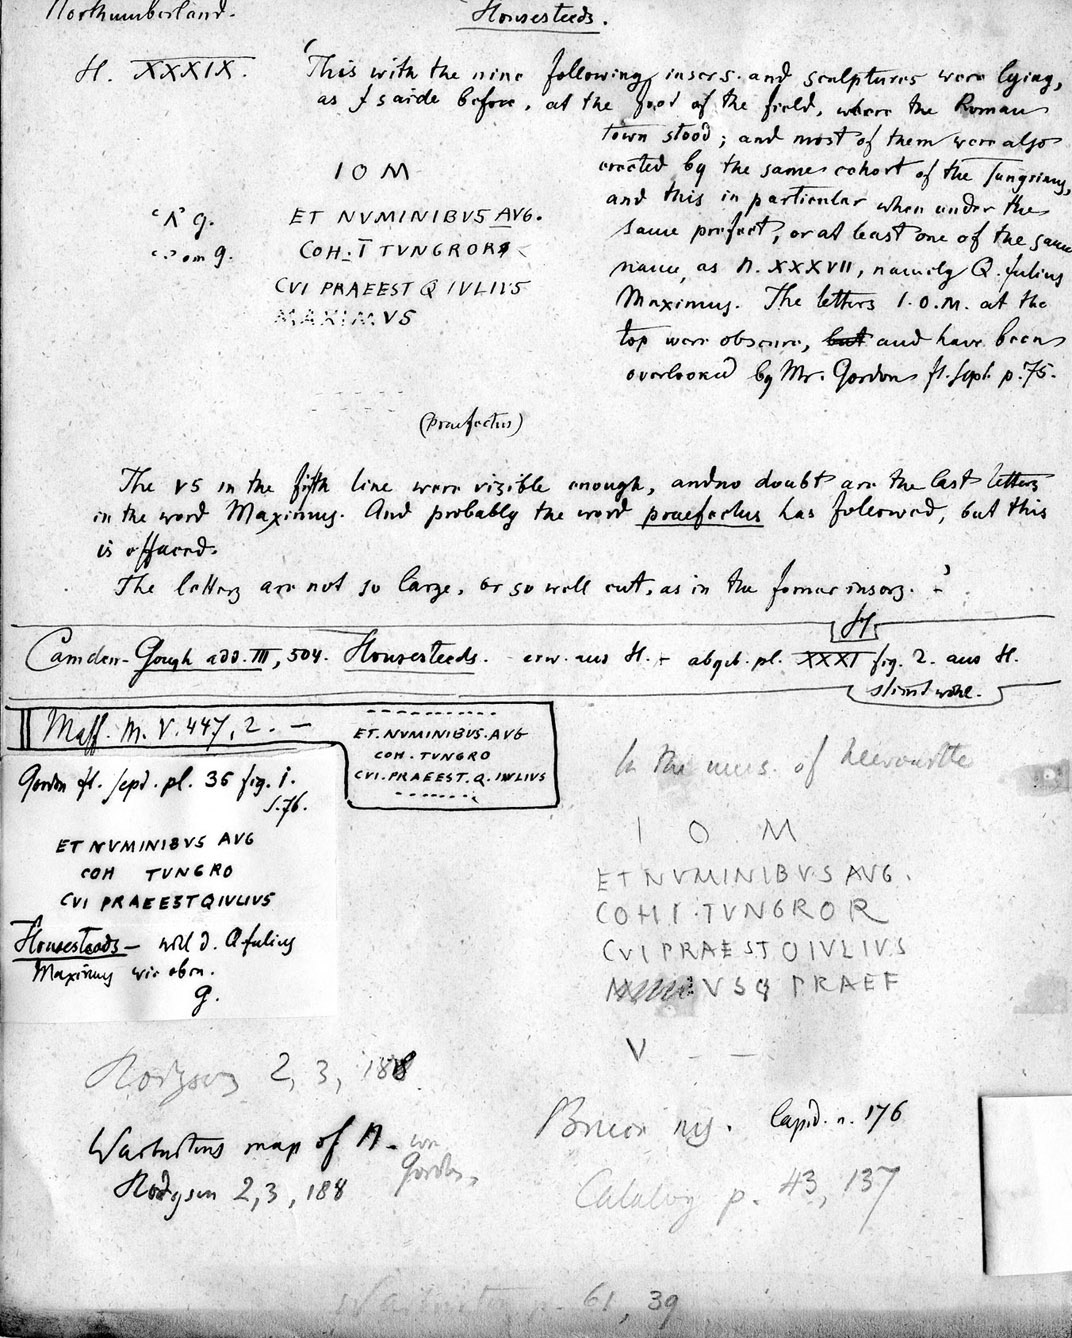 Northumberland.
Housesteeds.
H. XXXIX.
'This with the nine following inscrs. and sculptures were lying,
as I saide before, at the foot of the field, where the Roman
town stood; and most of them were also
erected by the same cohort of the Tungrians,
and this in particular when under the
same prefect, or at least one of the same
name, as N. XXXVII, namely Q. Julius
Maximus. The letters I.O.M. at the
top were obscure, but and have been
overlooked by Mr. Gordon It. Sept. p. 75.
I O M
ET NVMINIBVS AVG.
COH. I TVNGROR
CVI PRAEEST Q IVLIVS
MAXIMVS
om g.
(praefectus)
The VS in the fifth line were visible enough, and no doubt are the last letters
in the word Maximus. And probably the word praefectus has followed, but this
is effaced.
The letters are not so large, or so well cut, as in the former inscr. -'
H
Camden-Gough add. III, 504. Housesteeds. - erw. aus H. - abgeb. pl. XXXI fig. 2. aus H.
stimt wohl.
Maff. M. V. 447, 2. -
ET. NVMINIBVS. AVG
COH. TVNGRO
CVI. PRAEEST. Q. IVLIVS
Gordon It. Sept. pl. 36 fig. 1.
S. 76.
ET NVMINIBVS AVG
COH TVNGRO
CVI PRAEEST Q IVLIVS
Housesteads - will d. Q Julius
Maximus wie oben.
g.
In the mus. of Newcastle
I O M
ET NVMINIBVS AVG.
COH I. TVNGROR
CVI PRAEST Q IVLIVS
VS PRAEF
V - -
Hodgson 2, 3, 188
Warburtons map of N. -
Gordon,
Hodgson 2, 3, 188
Bruce ms. Lapid. n. 176
Catalog p. 43, 137
Warburton p. 61, 39